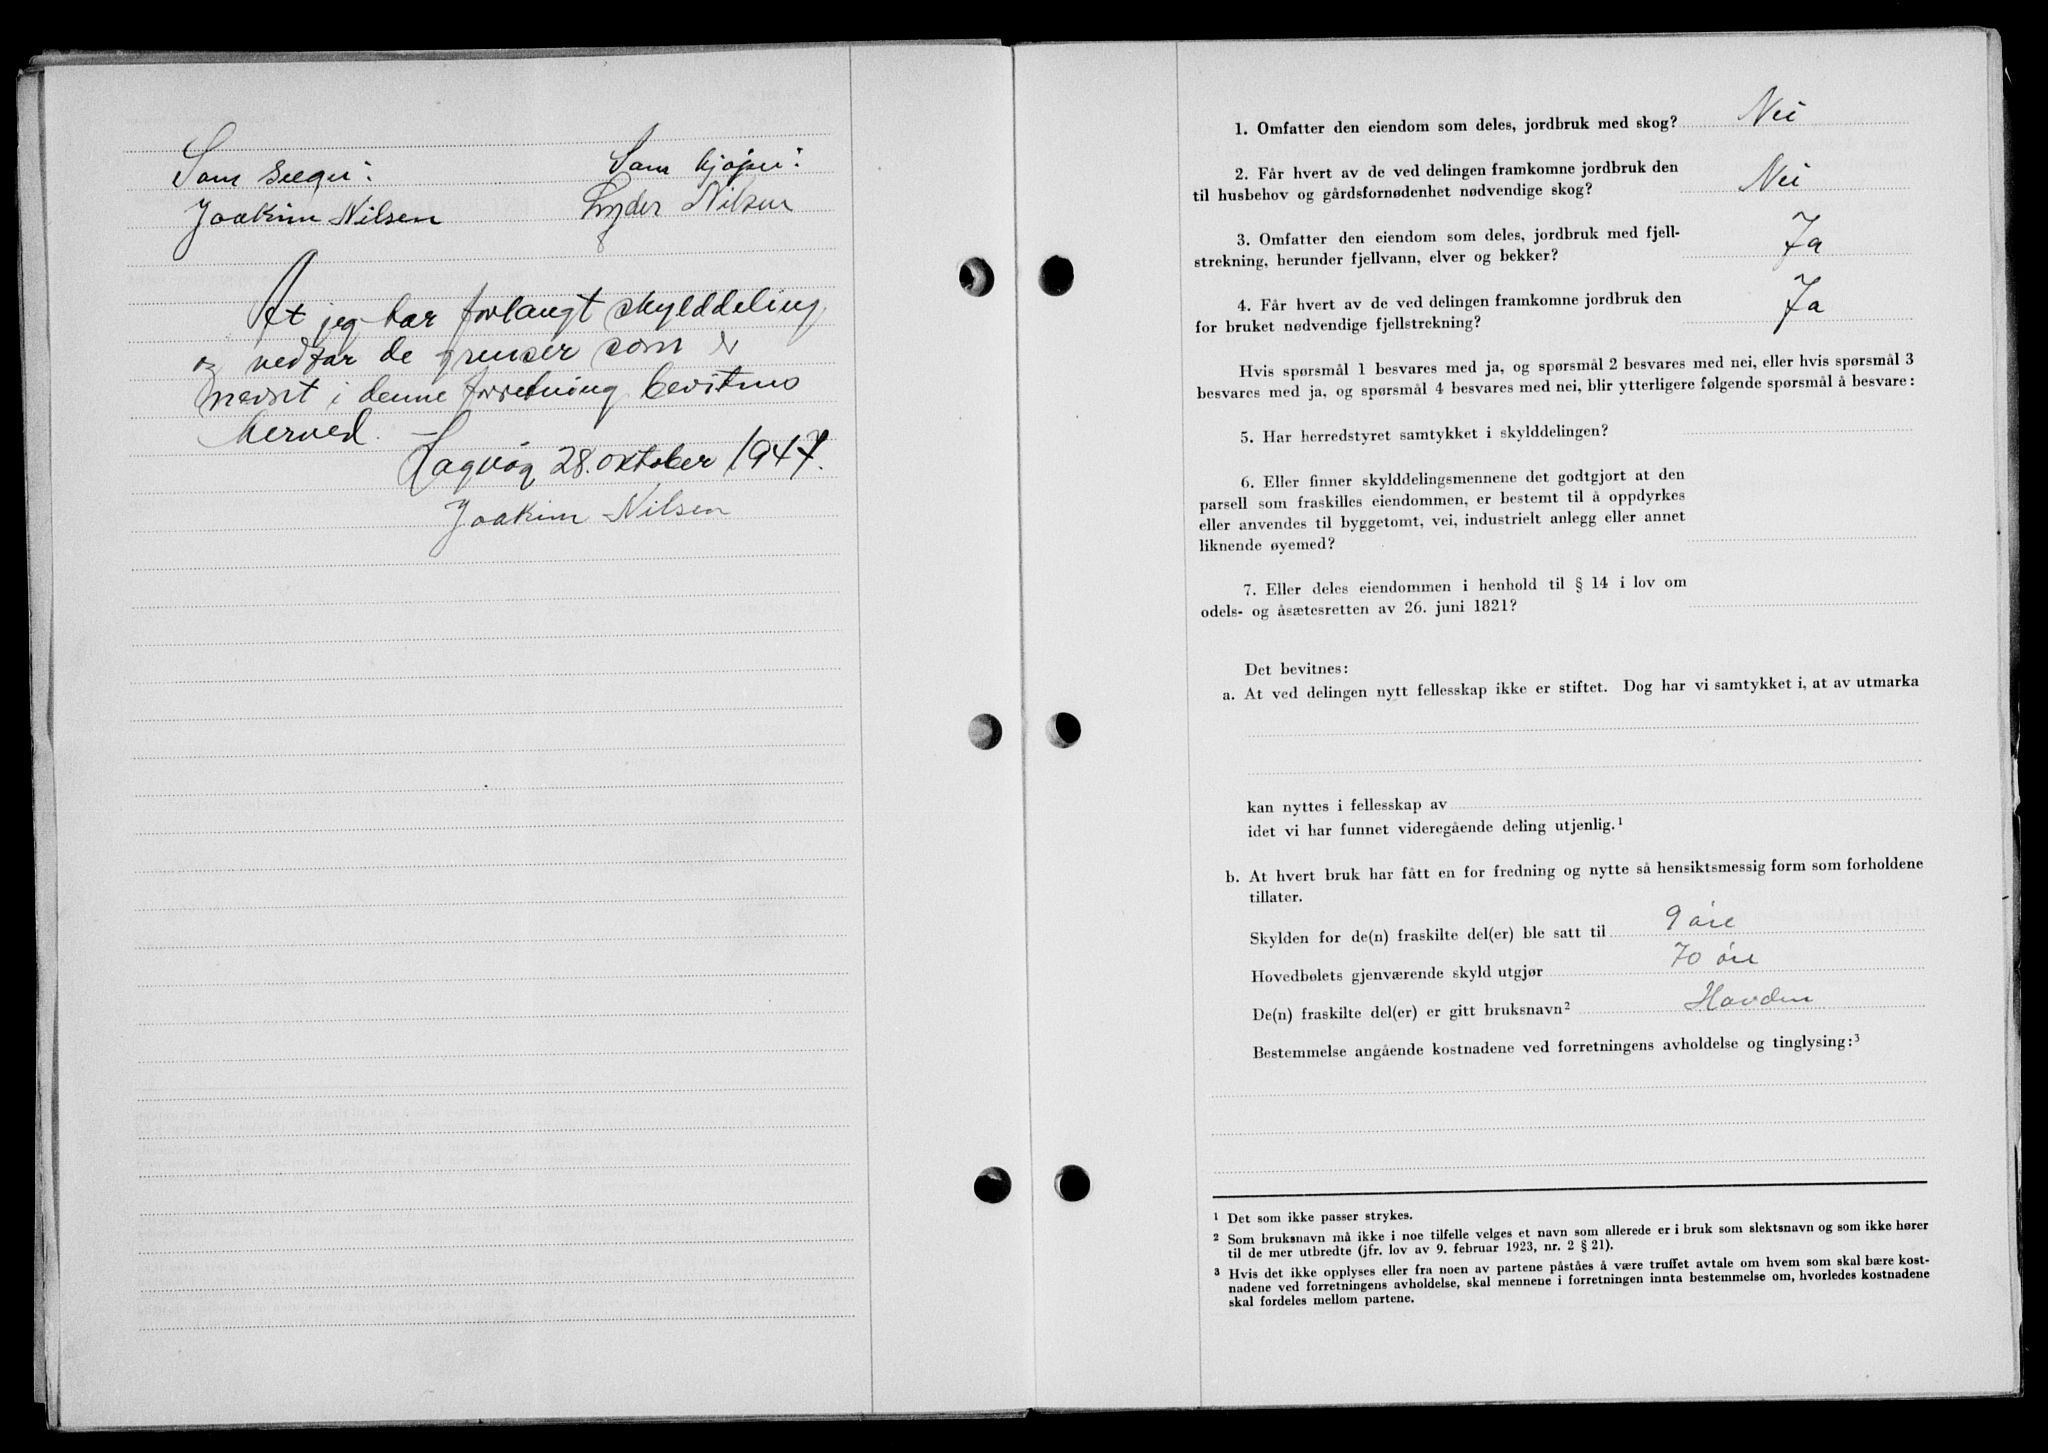 Som selger: Som kjøper:
Joakim Nilsen Lyder Nilsen
At jeg har forlangt skylddeling
og vedtar de grenser som er
nevnt i denne forretning bevitnes
herved.
Hagvåg 28. oktober 1947.
Joakim Nilsen
1. Omfatter den eiendom som deles, jordbruk med skog? Nei
2. Får hvert av de ved delingen framkomne jordbruk den
til husbehov og gårdsfornødenhet nødvendige skog? Nei
3. Omfatter den eiendom som deles, jordbruk med fjell-
strekning, herunder fjellvann, elver og bekker? Ja
4. Får hvert av de ved delingen framkomne jordbruk den
for bruket nødvendige fjellstrekning? Ja
Hvis spørsmål 1 besvares med ja, og spørsmål 2 besvares med nei, eller hvis spørsmål 3
besvares med ja, og spørsmål 4 besvares med nei, blir ytterligere følgende spørsmål å besvare:
5. Har herredstyret samtykket i skylddelingen?
6. Eller finner skylddelingsmennene det godtgjort at den
parsell som fraskilles eiendommen, er bestemt til å oppdyrkes
eller anvendes til byggetomt, vei, industrielt anlegg eller annet
liknende øyemed?
7. Eller deles eiendommen i henhold til § 14 i lov om
odels- og åsætesretten av 26. juni 1821?
Det bevitnes:
a. At ved delingen nytt fellesskap ikke er stiftet. Dog har vi samtykket i, at av utmarka
kan nyttes i fellesskap av
idet vi har funnet videregående deling utjenlig.¹
b. At hvert bruk har fått en for fredning og nytte så hensiktsmessig form som forholdene
tillater.
Skylden for de(n) fraskilte del(er) ble satt til 9 øre
Hovedbølets gjenværende skyld utgjør 70 øre
De(n) fraskilte del(er) er gitt bruksnavn² Havden
Bestemmelse angående kostnadene ved forretningens avholdelse og tinglysing:³
¹ Det som ikke passer strykes.
² Som bruksnavn må ikke i noe tilfelle velges et navn som allerede er i bruk som slektsnavn og som ikke hører
til de mer utbredte (jfr. lov av 9. februar 1923, nr. 2 § 21).
³ Hvis det ikke opplyses eller fra noen av partene påståes å være truffet avtale om hvem som skal bære kost-
nadene ved forretningens avholdelse, skal mennene i forretningen innta bestemmelse om, hvorledes kostnadene
skal fordeles mellom partene.